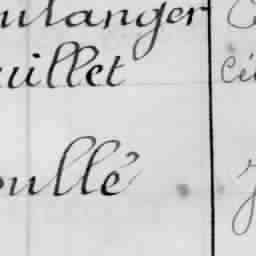 ulanger
uillet
oullé